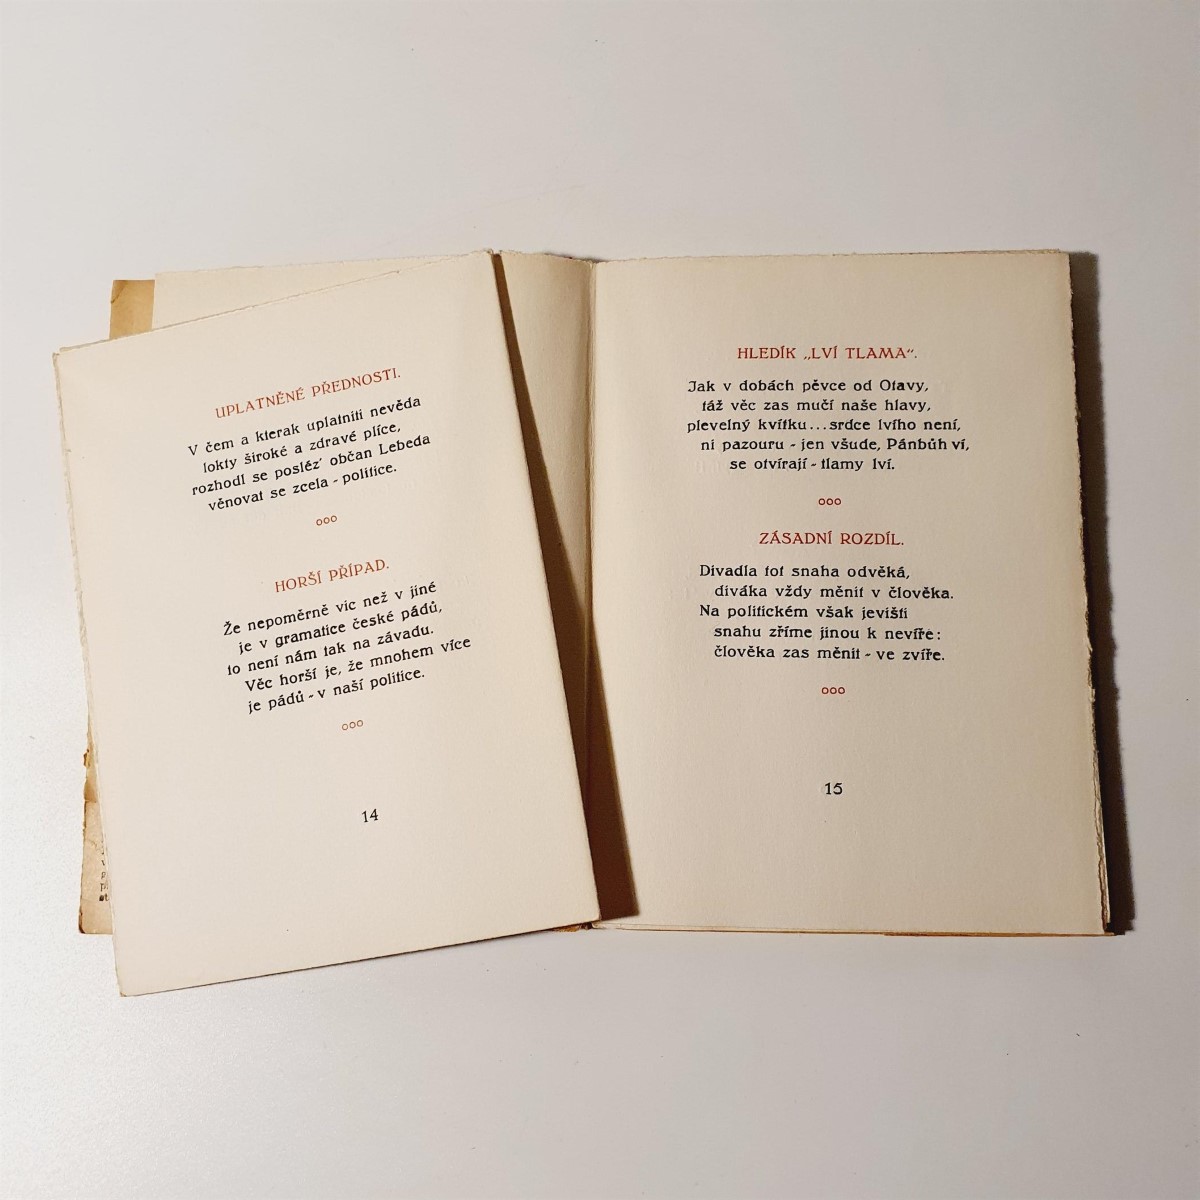 UPLATNĚNÉ PŘEDNOSTI.
V čem a kterak uplatniti nevěda
lokty široké a zdravé plíce,
rozhodl se posléz' občan Lebeda
věnovat se zcela - politice.
ooo
HORŠÍ PŘÍPAD.
Že nepoměrně víc než v jiné
je v gramatice české pádů,
to není nám tak na závadu.
Věc horší je, že mnohem více
je pádů - v naší politice.
ooo
14
HLEDÍK „LVÍ TLAMA“.
Jak v dobách pěvce od Otavy,
táž věc zas mučí naše hlavy,
plevelný kvítku... srdce lvího není,
ni pazouru - jen všude, Pánbůh ví,
se otvírají - tlamy lví.
ooo
ZÁSADNÍ ROZDÍL.
Divadla toť snaha odvěká,
diváka vždy měnit v člověka.
Na politickém však jevišti
snahu zříme jinou k nevíře:
člověka zas měnit - ve zvíře.
ooo
15